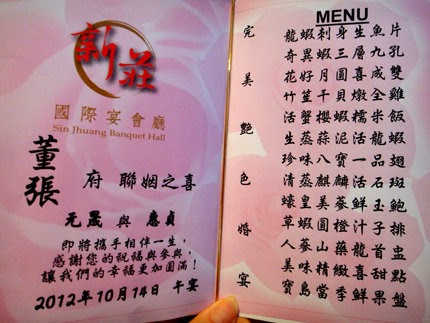 新莊
國際宴會廳
Sin Jhuang Banquet Hall
董
張
府 聯姻之喜
元晟 與 惠貞
即將攜手相伴一生，
感謝您的祝福與參與，
讓我們的幸福更加圓滿！
2012年10月14日 午宴
完美艷色婚宴
MENU
龍蝦刺身生魚片
奇異蝦三層九孔
花好月圓喜成雙
竹笙干貝燉全雞
活蟹櫻蝦糯米飯
生蒸蒜泥活龍蝦
珍味八寶一品翅
清蒸麒麟活石斑
蠔皇美蔘鮮玉鮑
草蝦圓橙汁子排
人蔘山藥龍首盅
美味精緻喜甜點
寶島當季鮮果盤